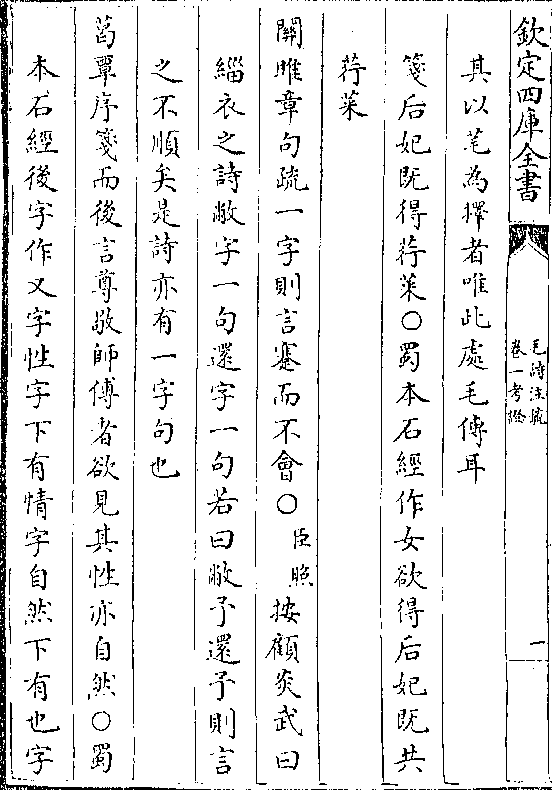 欽定四庫全書
毛詩注疏
卷一考證
一
其以芼為擇者唯此處毛傳耳
箋后妃既得荇菜○蜀本石經作女欲得后妃既共
荇菜
關雎章句疏一字則言蹇而不會○臣照按顧炎武曰
緇衣之詩敝字一句還字一句若曰敝予還予則言
之不順矣是詩亦有一字句也
葛覃序箋而後言尊敬師傅者欲見其性亦自然○蜀
本石經後字作又字性字下有情字自然下有也字